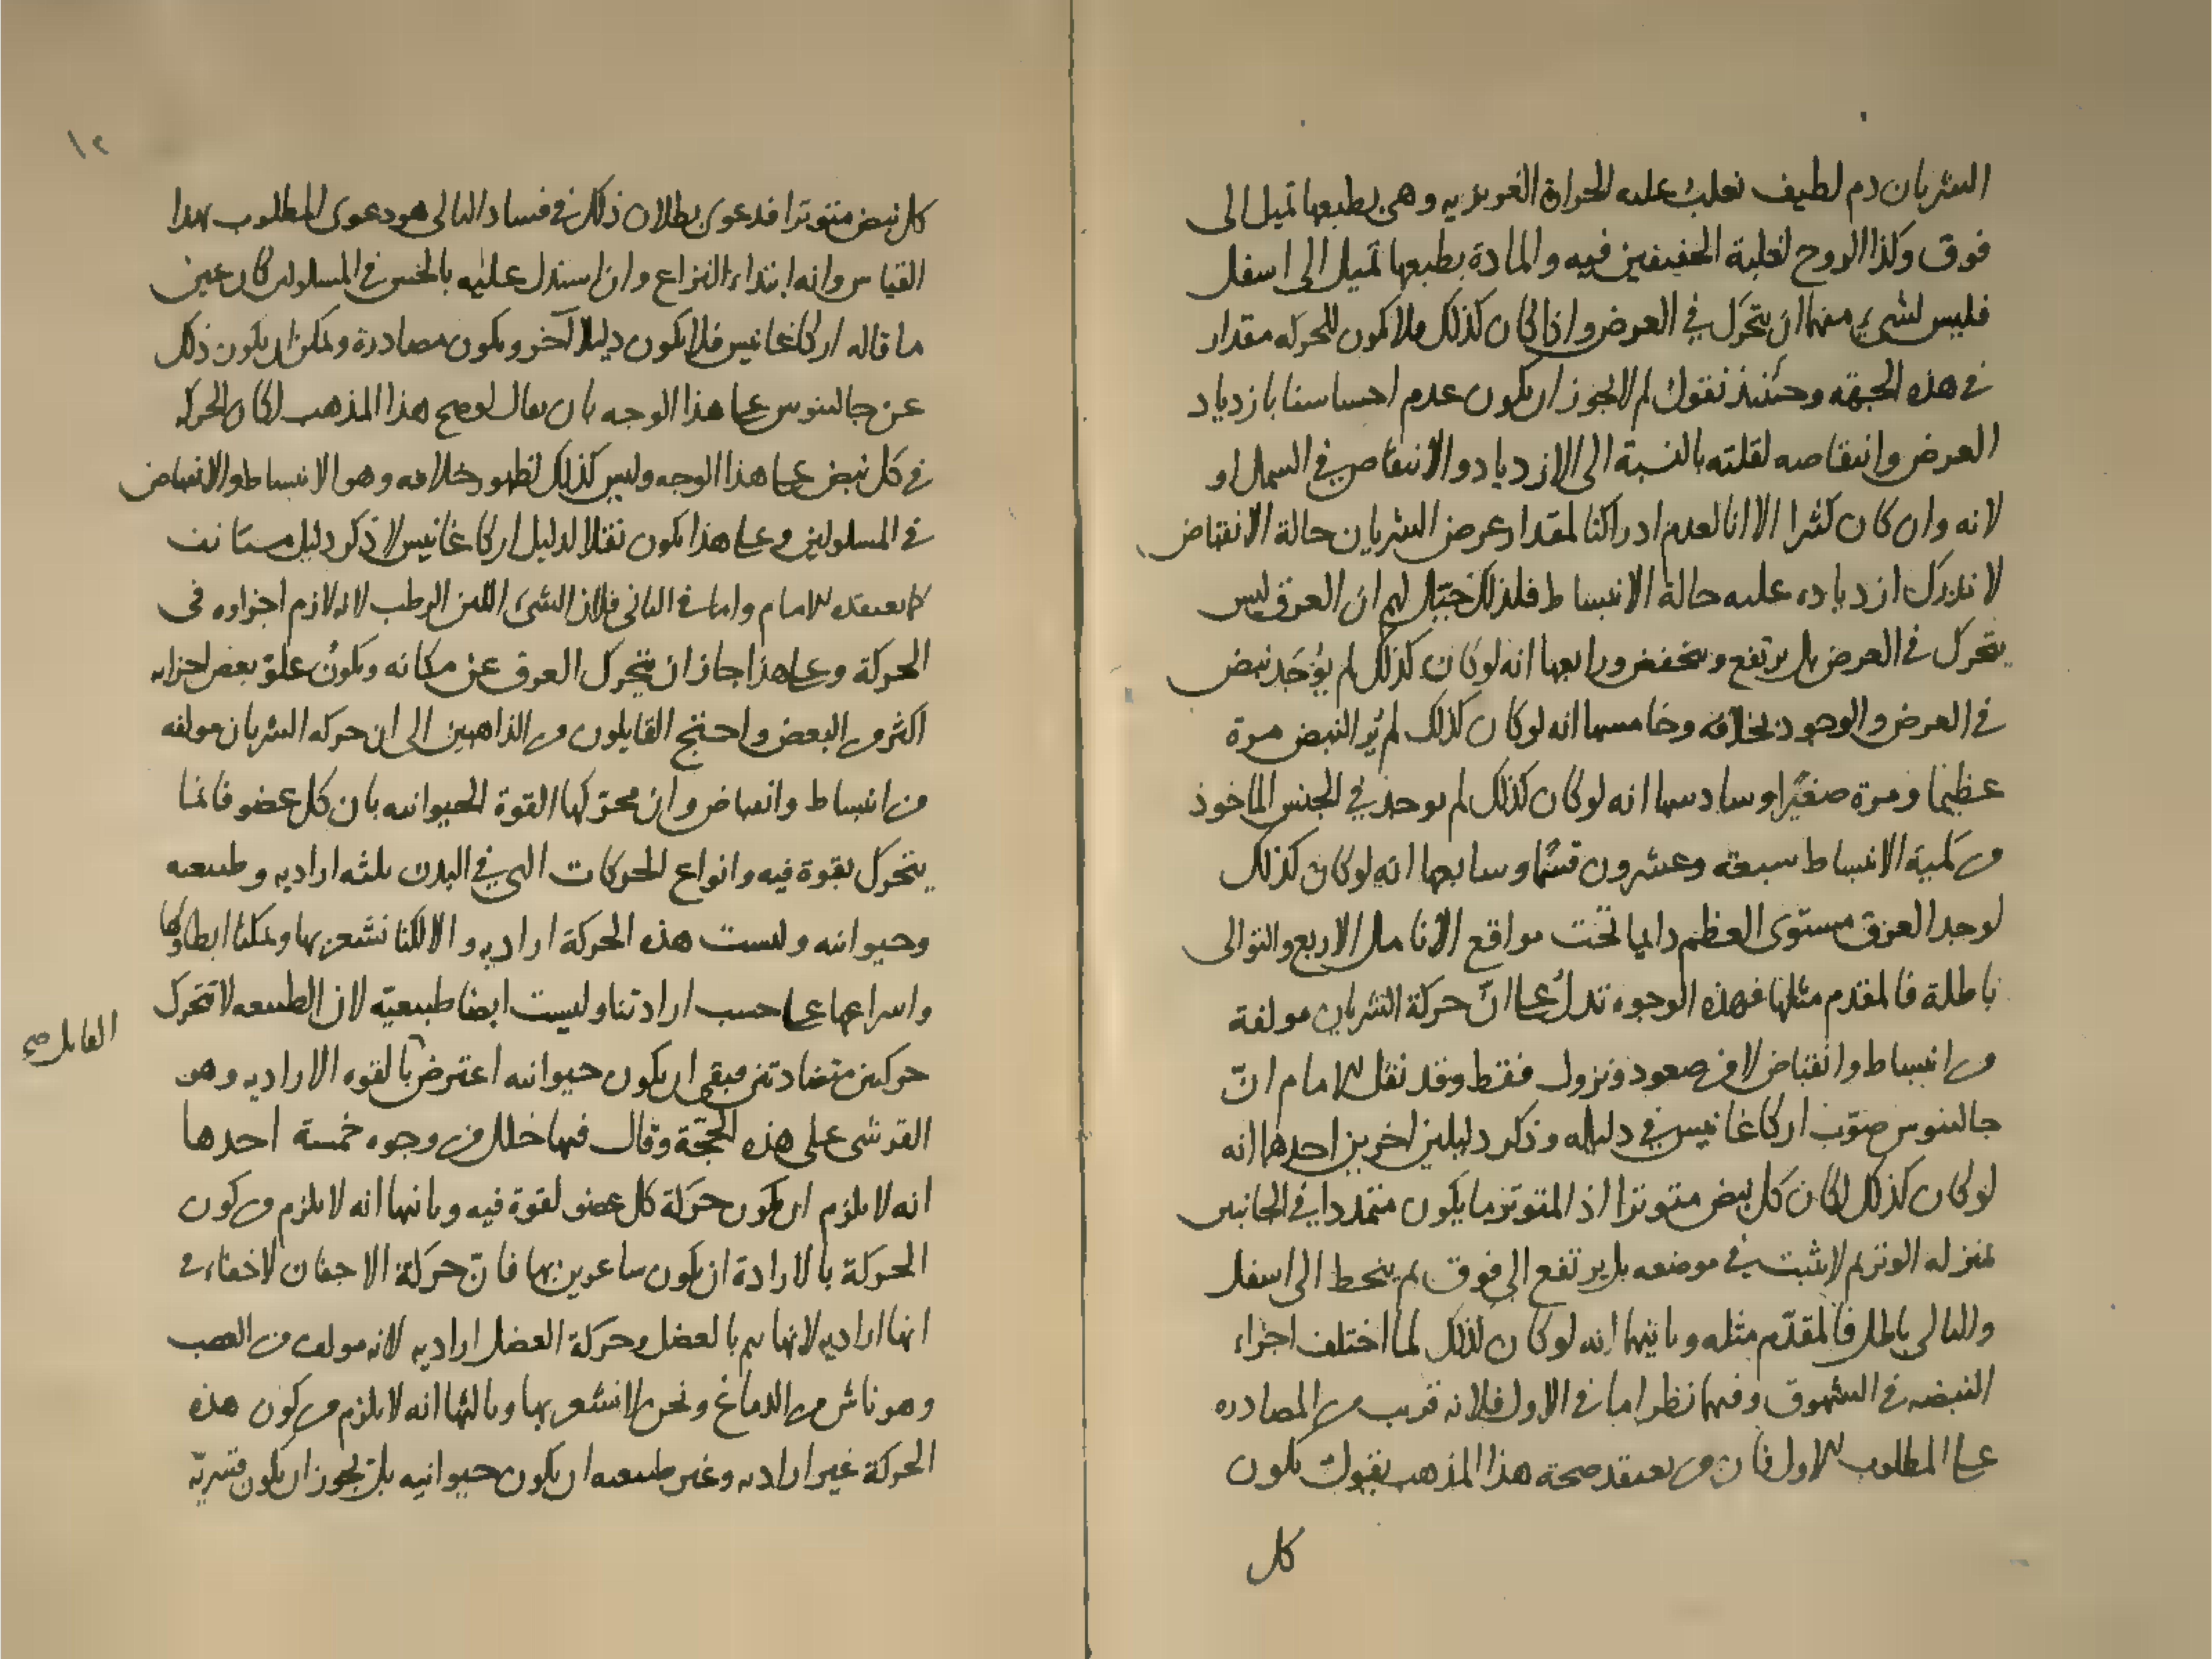 الشريان دم لطيف تغلب عليه الحرارة الغريزيه وهي بطبعها تميل الى
فوق وكذا الروح لغلبة الخفيفين فيه والمادة بطبعها تميل الى اسفل
فليس لشيء منهما ان يتحرك في العرض واذا كان كذلك فلا يكون للحركه مقدار
في هذه الجهة وحينئذ نقول لم لا يجوز ان يكون عدم احساسنا بازدياد
العرض وانتقاصه لقلته بالنسبة الى الازدياد والانتقاص في السمك او
لانه وان كان كثيرا الا انا لعدم ادراكنا لمقدار عرض الشريان حالة الانقباض
لا ندرك ازدياده عليه حالة الانبساط فلذلك خيّل لهم ان العرق ليس
يتحرك في العرض بل يرتفع وينخفض ورابعها انه لو كان كذلك لم يوجد نبض
في العرض والوجود بخلافه وخامسها انه لو كان كذلك لم يُر النبض مرة
عظيما ومرة صغيرا وسادسها انه لو كان كذلك لم يوجد في الجنس الماخوذ
من كمية الانبساط سبعة وعشرون قسمًا وسابعها انه لو كان كذلك
لوجد العرق مستوى العظم دايما تحت مواقع الانامل الاربع والتوالى
باطلة فالمقدم مثلها فهذه الوجوه تدل على انّ حركة الشريان مولفة
من انبساط وانقباض لا من صعود ونزول فقط وقد نقل الامام انّ
جالينوس صوّب اركاغانيس في دليله وذكر دليلين اخرين احدهما انه
لو كان كذلك لكان كل نبض متوترا اذ المتوتر ما يكون متمددا في الجانبين
بمنزله الوتر ثم لا يثبت في موضعه بل يرتفع الى فوق ثم ينحط الى اسفل
والتالي باطل فالمقدّم مثله وثانيهما انه لو كان كذلك لما اختلف اجزاء
النبضه في الشهوق وفيهما نظر اما في الاول فلانه قريب من المصادره
على المطلوب الاول فان من يعتقد صحة هذا المذهب يقول بكون
كل
١٢
كل نبض متوترا فدعوى بطلان ذلك في فساد التالى هو دعوى المطلوب بهذا
القياس وانه ابتداء النزاع وان استدل عليه بالحس في المسلولين كان عين
ما قاله اركاغانيس فلا يكون دليلا آخر ويكون مصادرة ويمكن ان يكون ذلك
عن جالينوس على هذا الوجه بان يقال لو صح هذا المذهب لكان الحركه
في كل نبض على هذا الوجه وليس كذلك لظهور خلافه وهو الانبساط والانقباض
في المسلولين وعلى هذا يكون نقلا لدليل اركاغانيس لا ذكر دليل مستانف
كما يعتقده الامام واما في الثاني فلان الشيء اللين الرطب لا تلازم اجزاوه في
الحركة وعلى هذا جاز ان يتحرك العرق عن مكانه ويكون علوّ بعض اجزايه
اكثر من البعض واحتج القايلون من الذاهبين الى ان حركه الشريان مولفه
من انبساط وانقباض وان محرّكها القوة الحيوانيه بان كل عضو فانما
يتحرك بقوة فيه وانواع الحركات التي في البدن ثلثه اراديه وطبيعيه
وحيوانيه وليست هذه الحركة اراديه والا لكنا نشعر بها ويمكننا ابطاوها
واسراعها على حسب ارادتنا وليست ايضا طبيعيّه لان الطبيعه لا تتحرك
حركتين متضادتين فبقي ان يكون حيوانيه اعترض بالقوه الاراديه وهو
القايل صح
القرشى على هذه الحجّة وقال فيها خلل من وجوه خمسة احدها
انه لا يلزم ان يكون حركة كل عضو لقوة فيه وثانيها انه لا يلزم من كون
الحركة بالارادة ان يكون شاعرين بها فانّ حركة الاجفان لا خفاء في
انها اراديه لانها تتم بالعضل وحركة العضل اراديه لانه مولف من العصب
وهو ناش من الدماغ ونحن لا نشعر بها وثالثها انه لا يلزم من كون هذه
الحركة غير اراديه وغير طبيعيه ان يكون حيوانيه بل يجوز ان يكون قسريّه